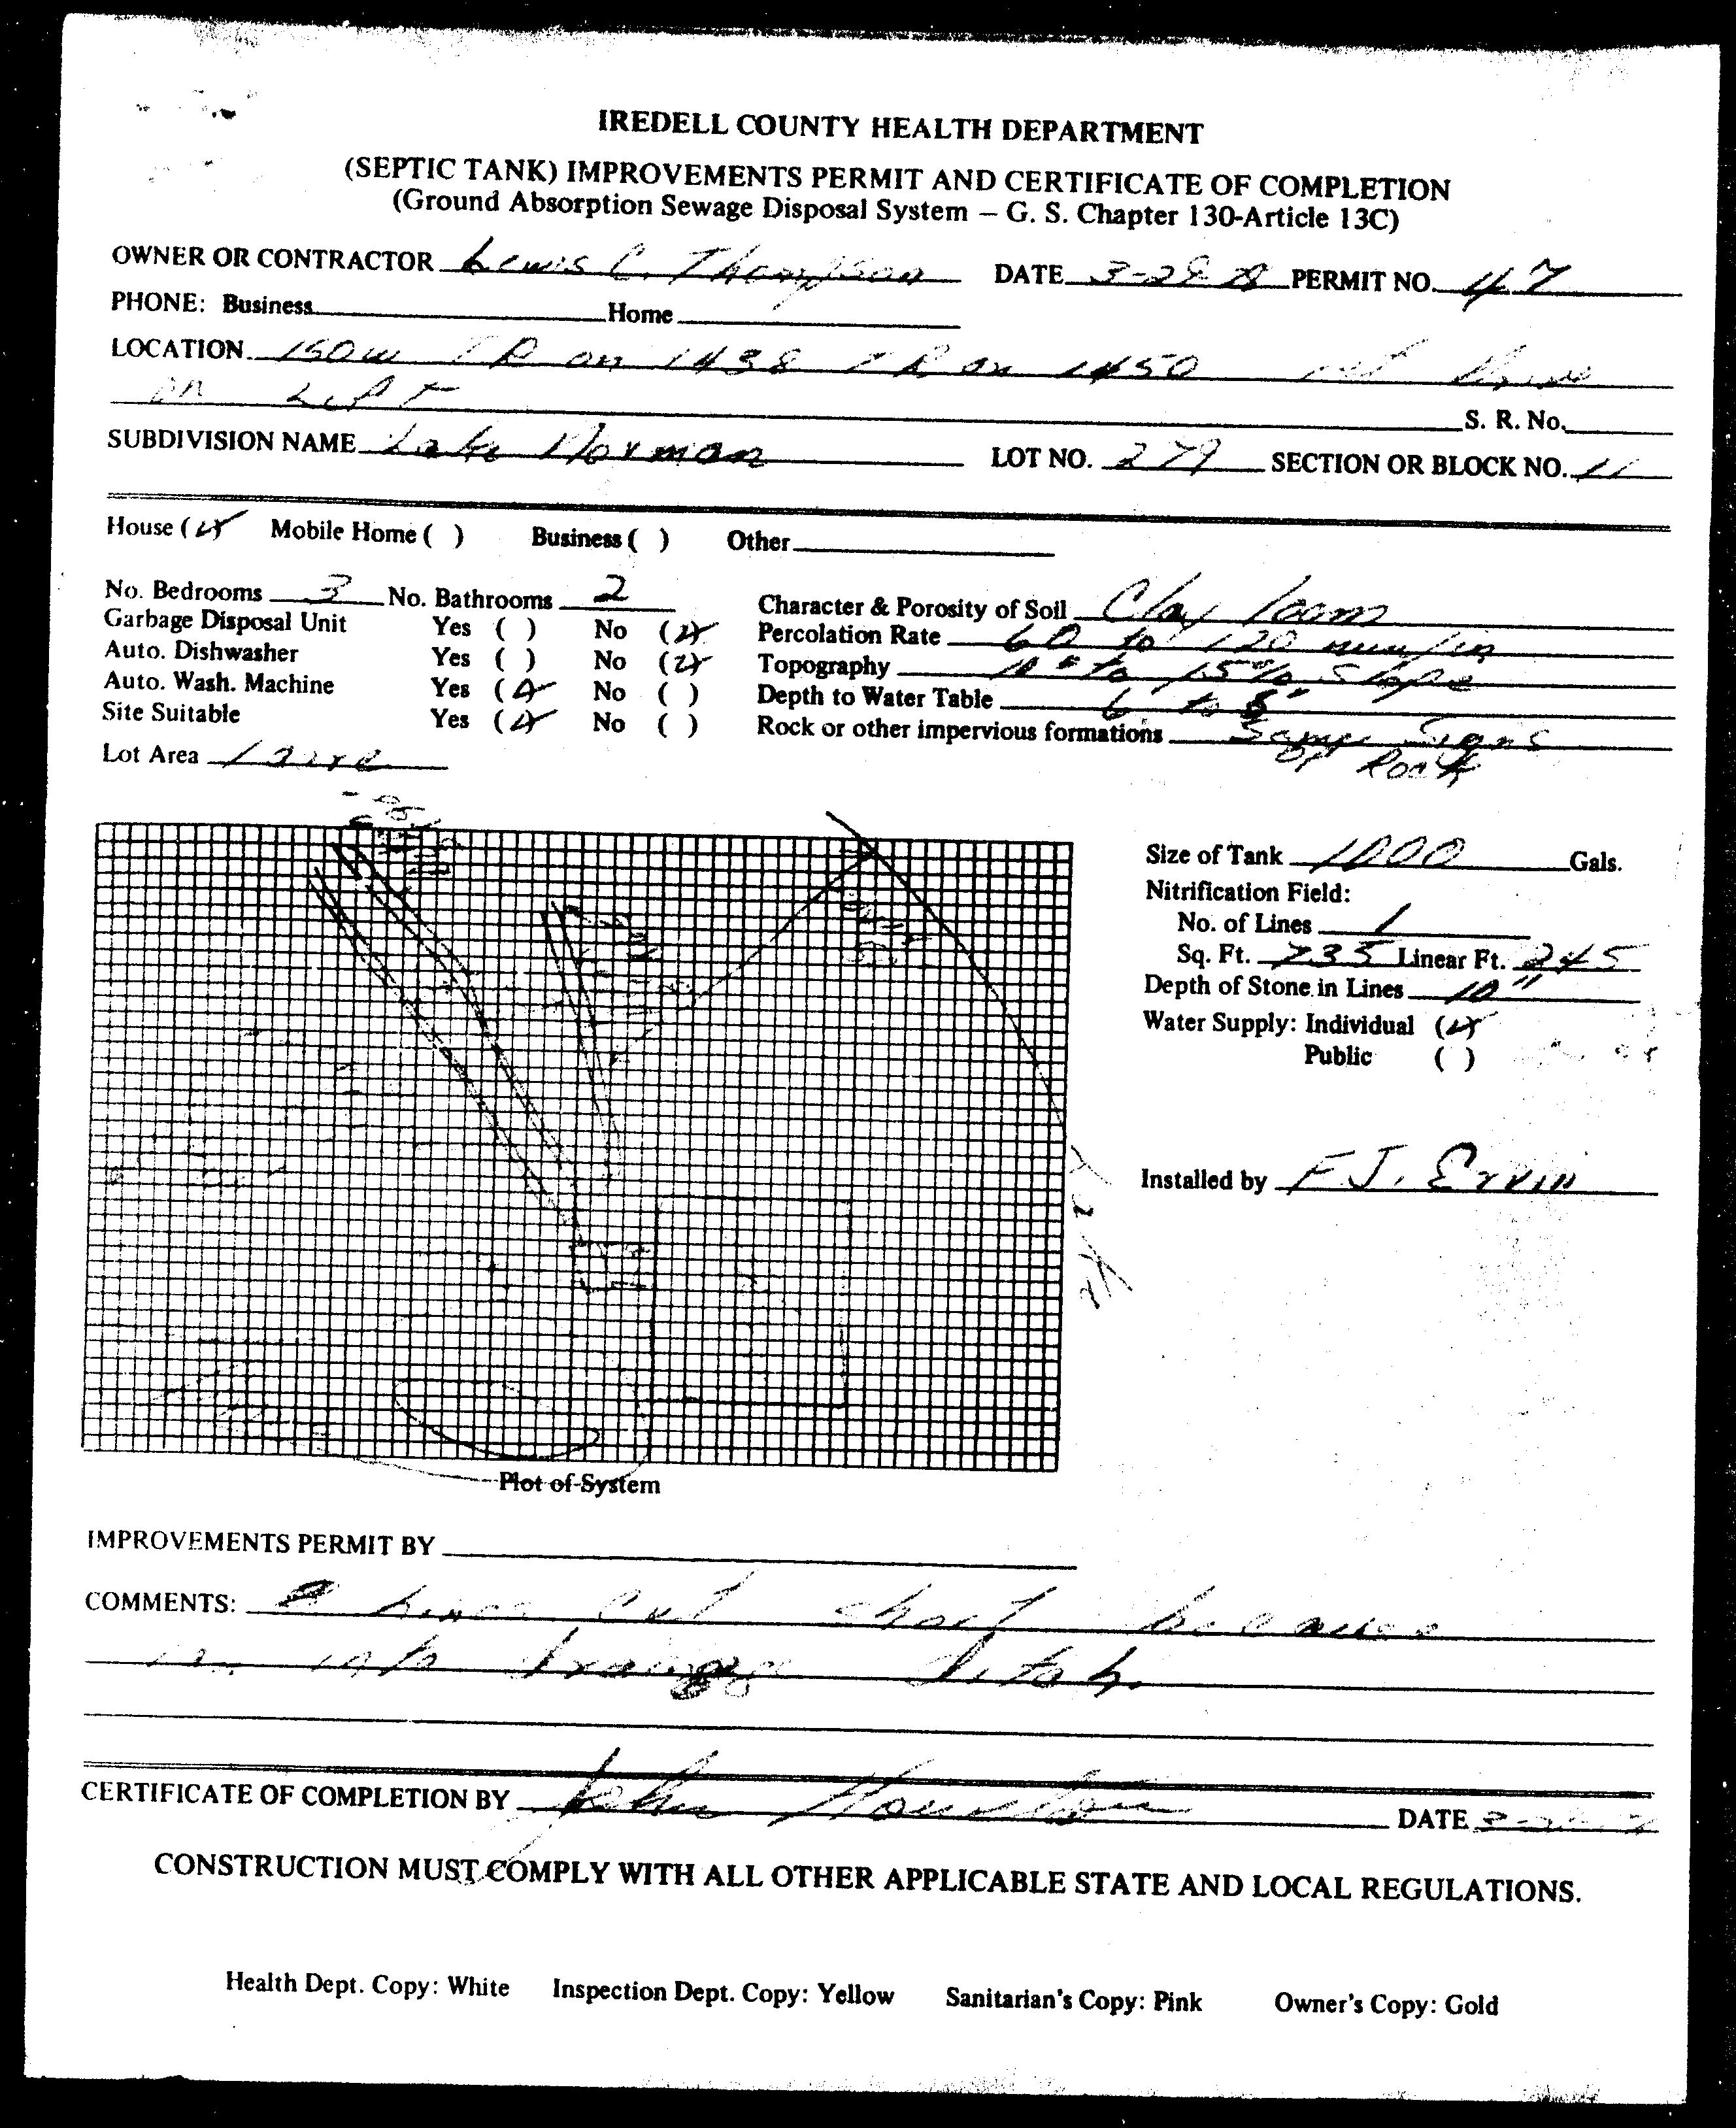 IREDELL COUNTY HEALTH DEPARTMENT
(SEPTIC TANK) IMPROVEMENTS PERMIT AND CERTIFICATE OF COMPLETION
(Ground Absorption Sewage Disposal System – G. S. Chapter 130-Article 13C)
OWNER OR CONTRACTOR Lewis C. Thompson DATE 3-28-78 PERMIT NO. 47
PHONE: Business Home
LOCATION 150 W TR on 1438 TR on 1450
on Left S. R. No.
SUBDIVISION NAME Lake Norman LOT NO. 279 SECTION OR BLOCK NO. 11
House (X) Mobile Home ( ) Business ( ) Other
No. Bedrooms 3 No. Bathrooms 2 Character & Porosity of Soil Clay loam
Garbage Disposal Unit Yes ( ) No (X) Percolation Rate 60 to 120 min/in
Auto. Dishwasher Yes ( ) No (X) Topography 10% to 15% Slope
Auto. Wash. Machine Yes (X) No ( ) Depth to Water Table 6 to 8'
Site Suitable Yes (X) No ( ) Rock or other impervious formations Some Signs
of Rock
Lot Area 1 acre
Size of Tank 1000 Gals.
Nitrification Field:
No. of Lines 1
Sq. Ft. 735 Linear Ft. 245
Depth of Stone in Lines 10"
Water Supply: Individual (X)
Public ( )
Installed by F. J. Ervin
Plot of System
IMPROVEMENTS PERMIT BY
COMMENTS: Lines cut short because
into Ditch.
CERTIFICATE OF COMPLETION BY John DATE
CONSTRUCTION MUST COMPLY WITH ALL OTHER APPLICABLE STATE AND LOCAL REGULATIONS.
Health Dept. Copy: White Inspection Dept. Copy: Yellow Sanitarian's Copy: Pink Owner's Copy: Gold